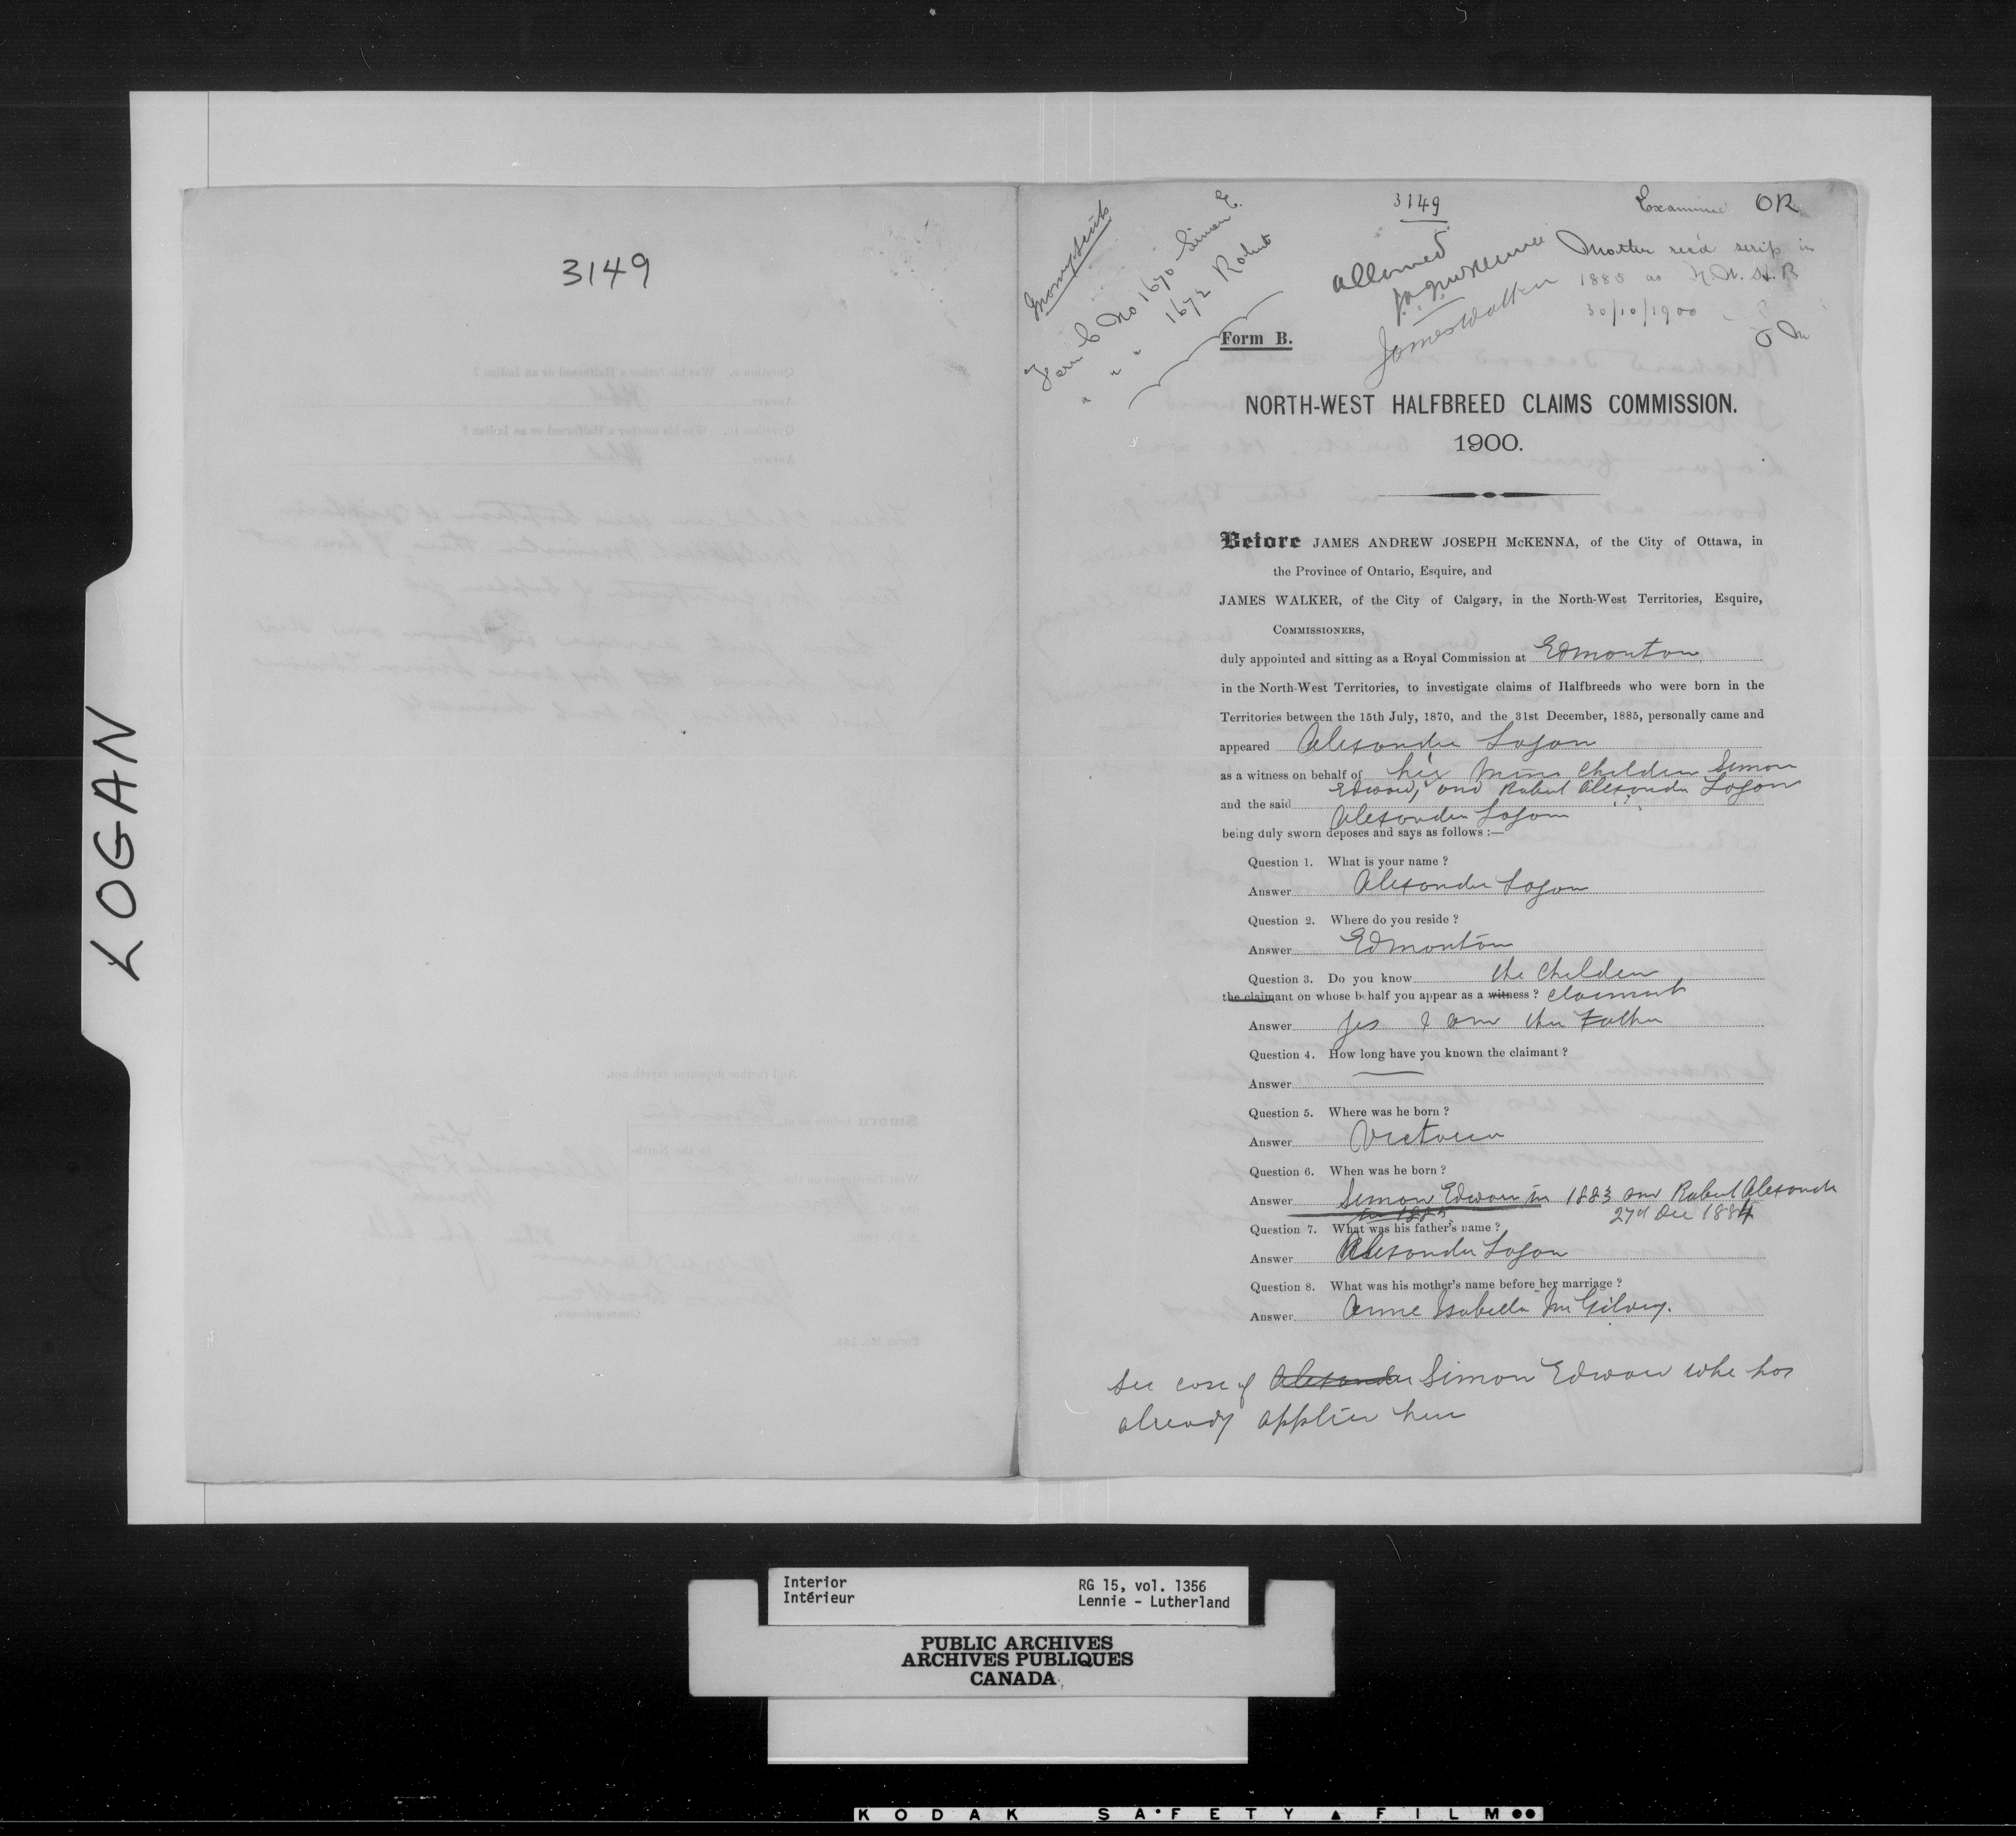 LOGAN
3149
3149
Examined OR
allowed
James Walker
Mother rec'd scrip in
1885 as N.W. H.B
30/10/1900
Form C No 1670 Simon E.
" " " 1672 Robert
Form B.
NORTH-WEST HALFBREED CLAIMS COMMISSION.
1900.
Before JAMES ANDREW JOSEPH McKENNA, of the City of Ottawa, in
the Province of Ontario, Esquire, and
JAMES WALKER, of the City of Calgary, in the North-West Territories, Esquire,
COMMISSIONERS,
duly appointed and sitting as a Royal Commission at Edmonton
in the North-West Territories, to investigate claims of Halfbreeds who were born in the
Territories between the 15th July, 1870, and the 31st December, 1885, personally came and
appeared Alexander Logan
as a witness on behalf of his minor children Simon
Edward, and Robert Alexander Logan
and the said Alexander Logan
being duly sworn deposes and says as follows :—
Question 1. What is your name ?
Answer Alexander Logan
Question 2. Where do you reside ?
Answer Edmonton
Question 3. Do you know the children
the claimant on whose behalf you appear as a witness ? claimant
Answer Yes I am the Father
Question 4. How long have you known the claimant ?
Answer
Question 5. Where was he born ?
Answer Victoria
Question 6. When was he born ?
Answer Simon Edward in 1883 and Robert Alexander
in 1885 27th Dec 1884
Question 7. What was his father's name ?
Answer Alexander Logan
Question 8. What was his mother's name before her marriage ?
Answer Anne Isabella McGilvery.
See case of Alexander Simon Edward who has
already applied here
Interior
Intérieur
RG 15, vol. 1356
Lennie - Lutherland
PUBLIC ARCHIVES
ARCHIVES PUBLIQUES
CANADA
KODAK SAFETY FILM